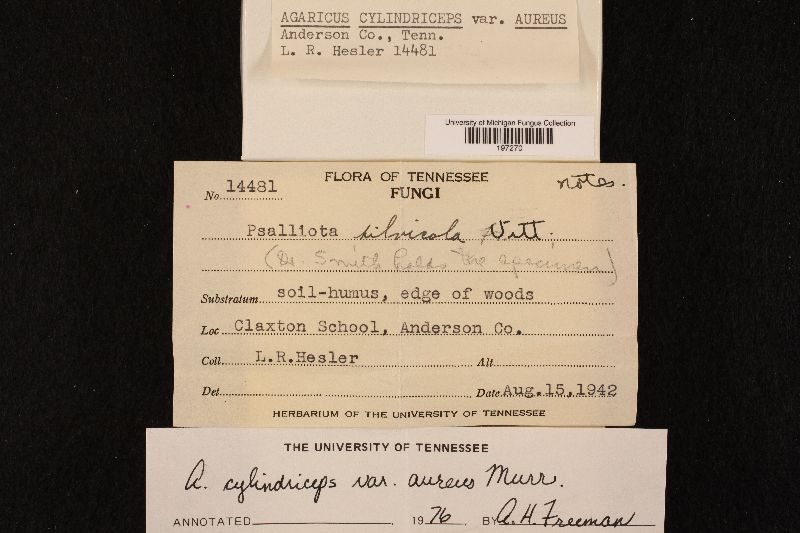 AGARICUS CYLINDRICEPS var. AUREUS
Anderson Co., Tenn.
L. R. Hesler 14481
University of Michigan Fungus Collection
197270
FLORA OF TENNESSEE
FUNGI
notes.
No. 14481
Psalliota silvicola Vitt.
(Dr. Smith holds the specimen)
Substratum soil-humus, edge of woods
Loc Claxton School, Anderson Co.
Coll. L.R.Hesler Alt
Det Date Aug.15,1942
HERBARIUM OF THE UNIVERSITY OF TENNESSEE
THE UNIVERSITY OF TENNESSEE
A. cylindriceps var. aureus Murr.
ANNOTATED 1976 BY A.H. Freeman